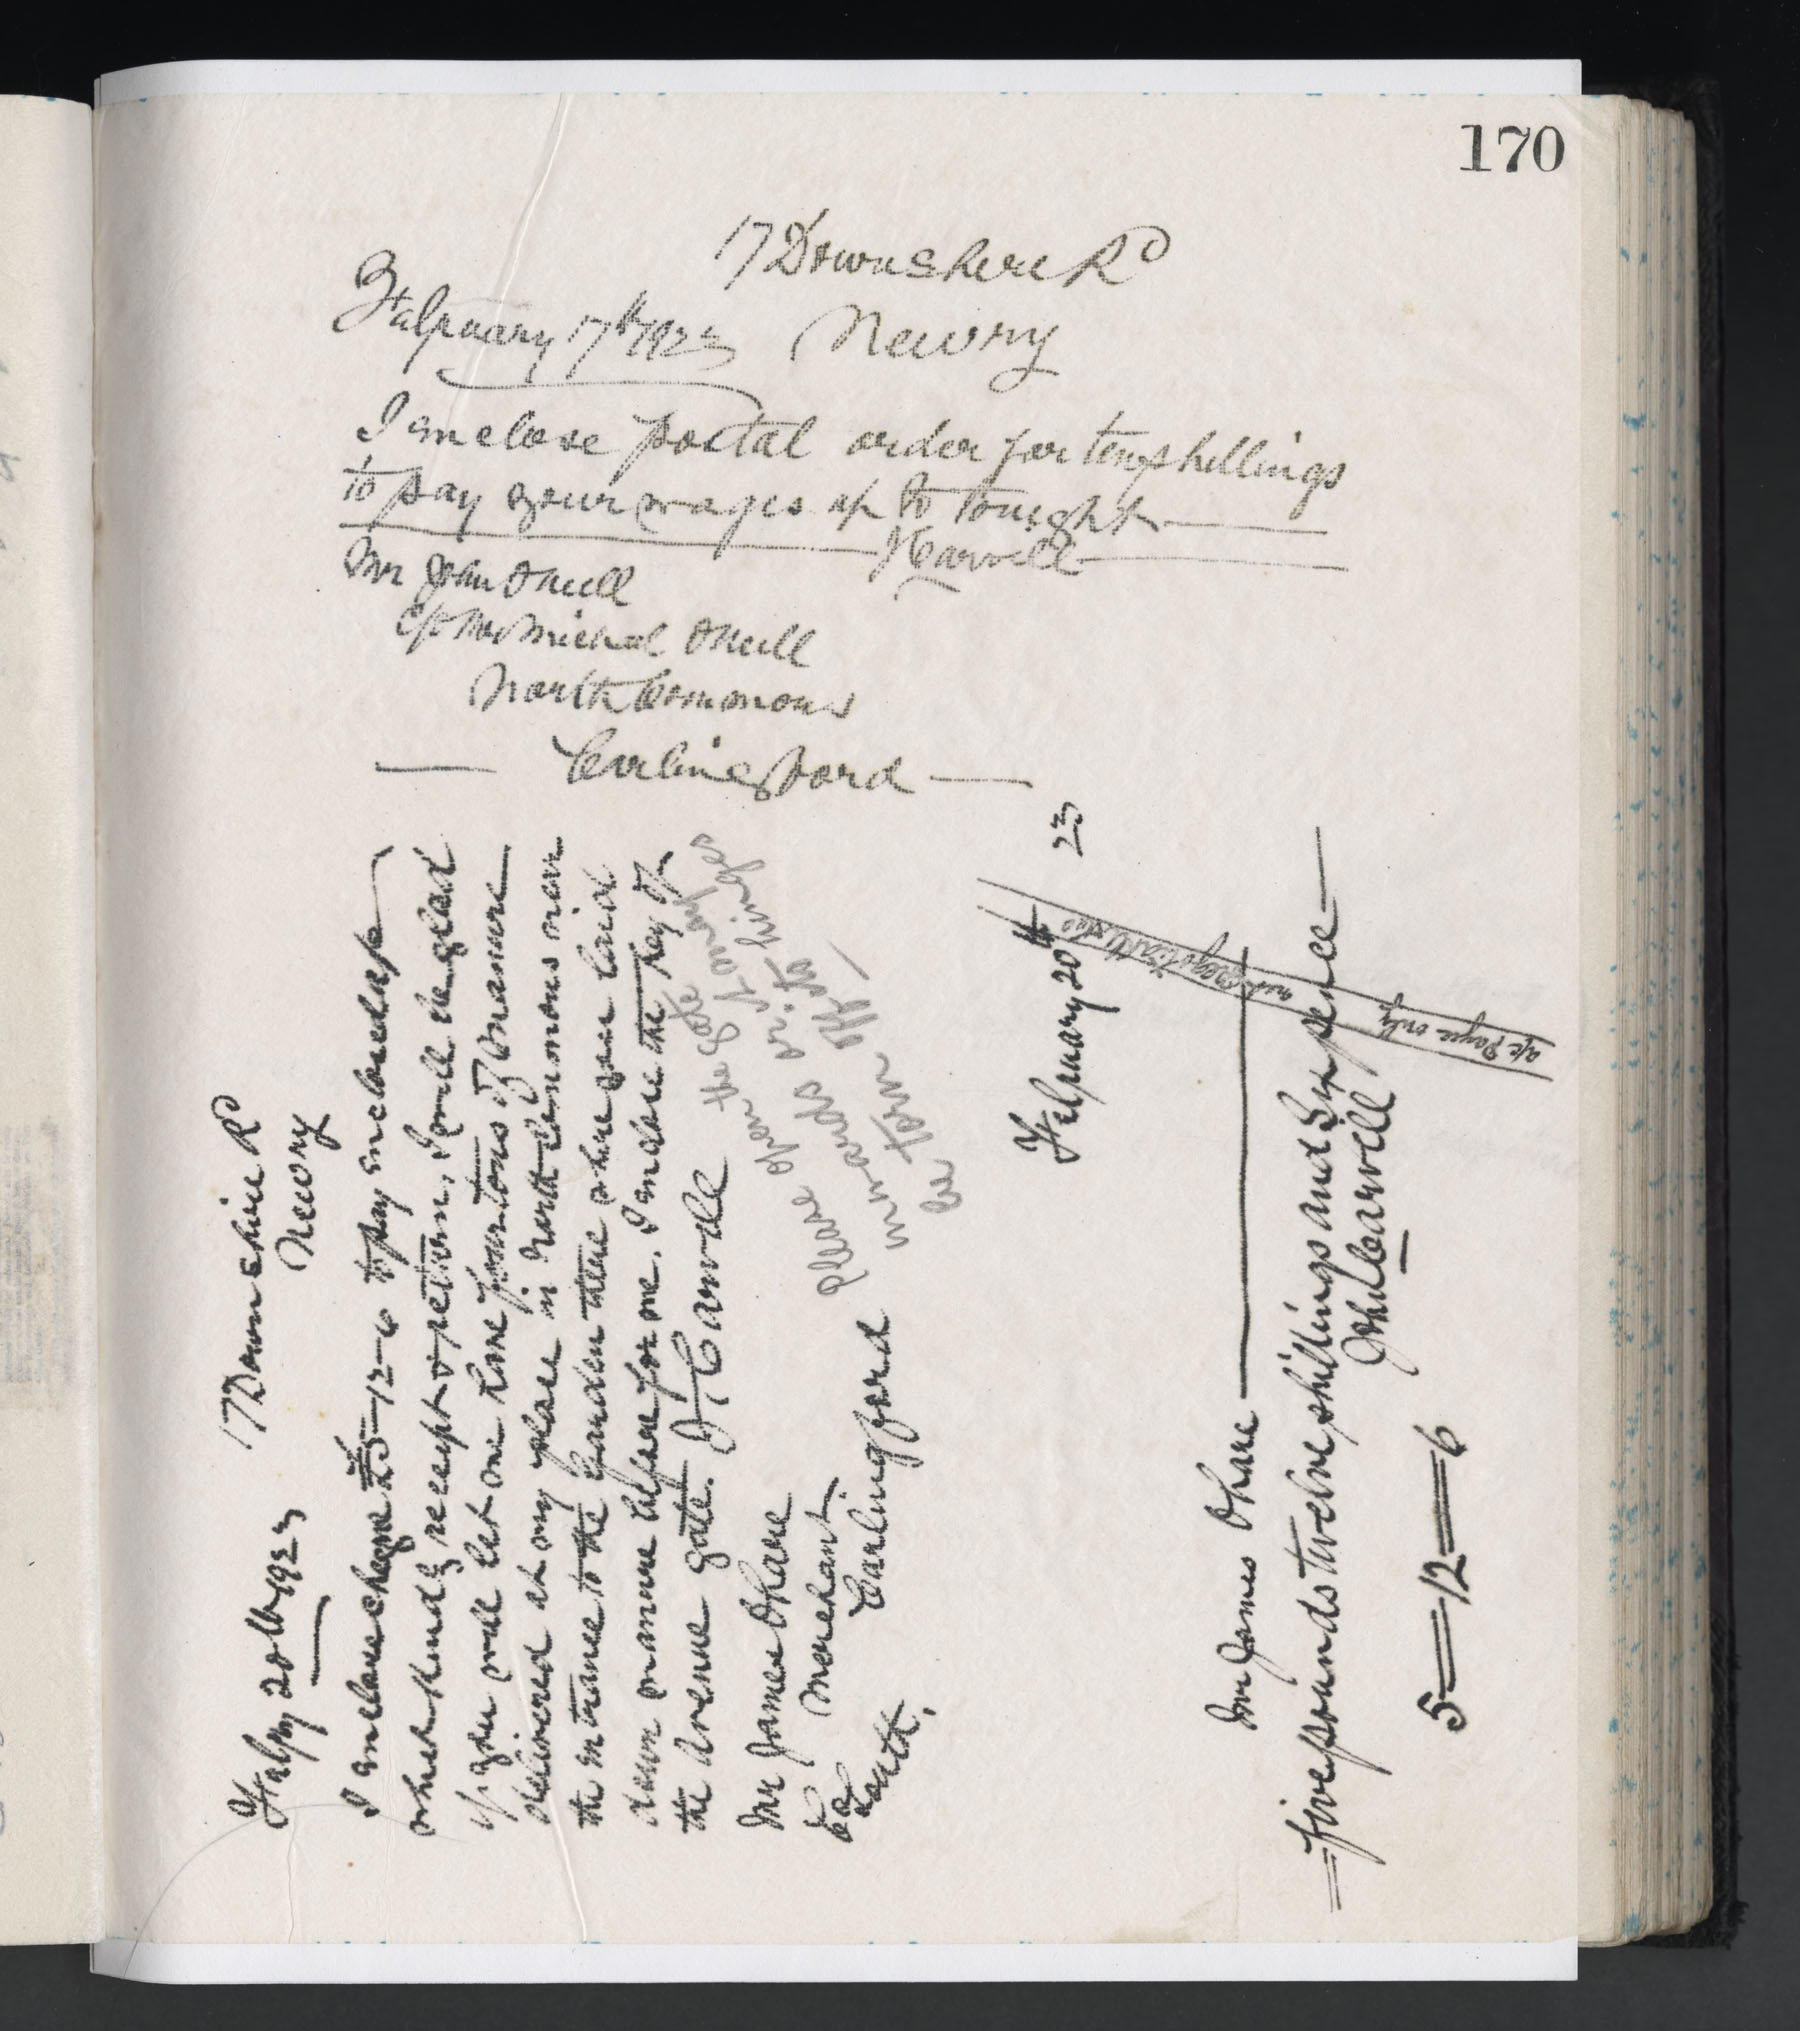 170
17 Downshire Rd
Newry
February 17th 1923
I enclose postal order for ten shillings
to pay your wages up to tonight
J Carvill
Mr John O Neill
c/o Mr Michael O Neill
North Commons
Carlingford
17 Downshire Rd
Newry
Feby 20th 1923
I enclose cheque £5-12-6 to pay enclosed a/c
which kindly receipt & return, I will be glad
if you will let me have four tons of manure
delivered at my place in North Commons near
the entrance to the Garden there where you laid
down manure before for me. I enclose the key of
the Avenue gate. J Carvill
please open the gate
inwards or its hinges
be torn off
Mr James O Hare
Merchant,
Carlingford
Co Louth.
February 20th 23
not negotiable
a/c Payee only
Mr James O Hare
five pounds twelve shillings and six pence
John Carvill
5-12-6